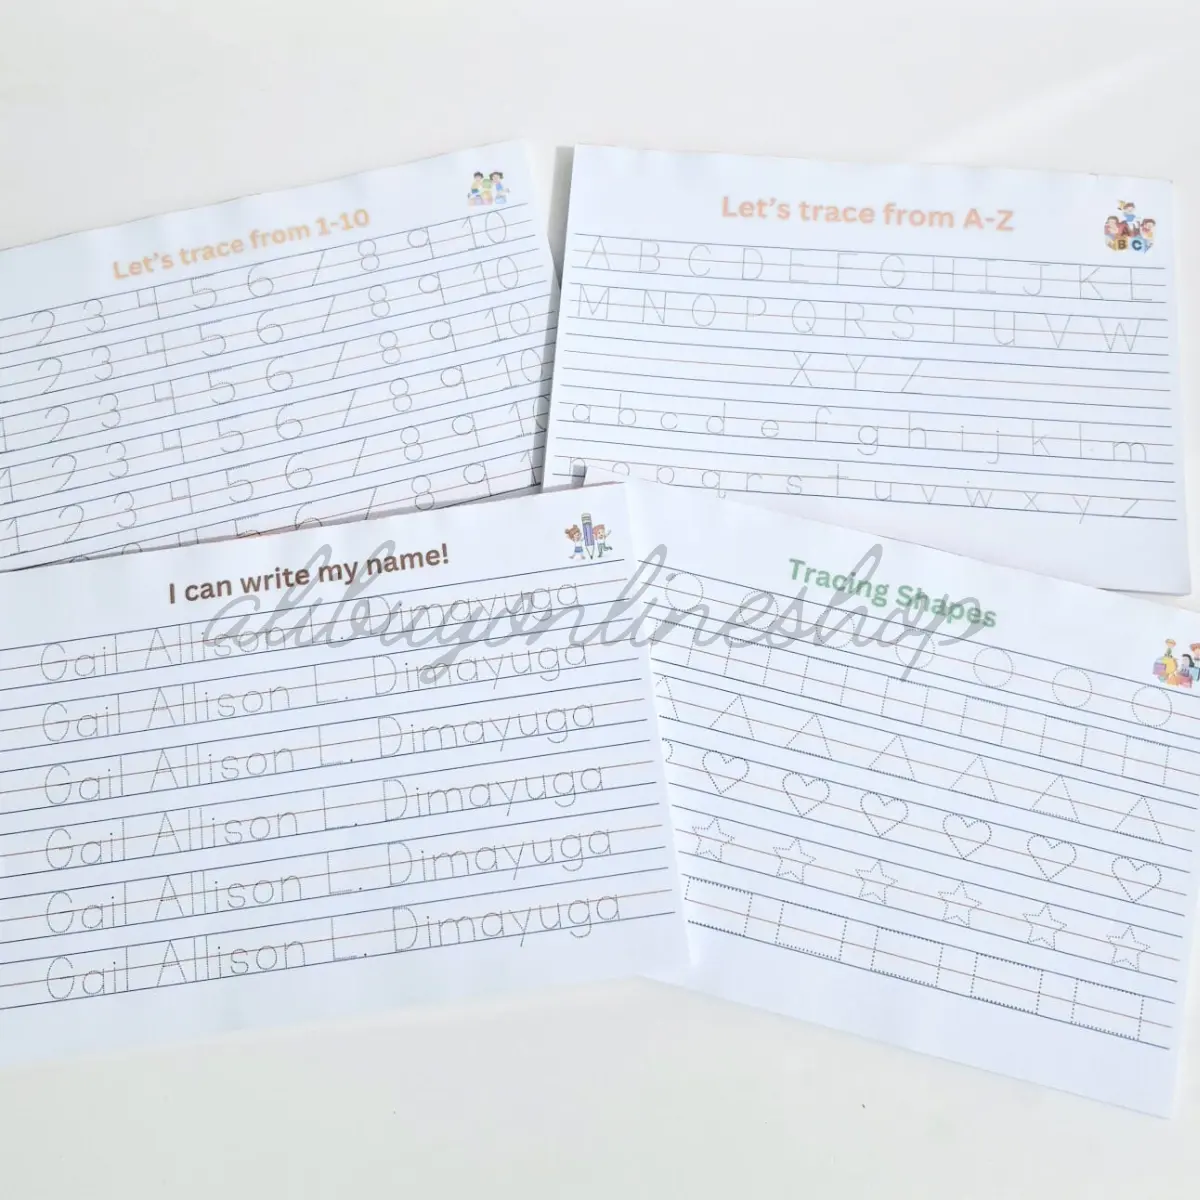 Let's trace from 1-10
2 3 4 5 6 7 8 9 10
2 3 4 5 6 7 8 9 10
1 2 3 4 5 6 7 8 9 10
1 2 3 4 5 6 7 8 9 10
1 2 3 4 5 6 7 8 9 10
Let's trace from A-Z
A B C D E F G H I J K L
M N O P Q R S T U V W
X Y Z
a b c d e f g h i j k l m
n o p q r s t u v w x y z
I can write my name!
Gail Allison L. Dimayuga
Gail Allison L. Dimayuga
Gail Allison L. Dimayuga
Gail Allison L. Dimayuga
Gail Allison L. Dimayuga
Gail Allison L. Dimayuga
Tracing Shapes
alibuyonlineshop